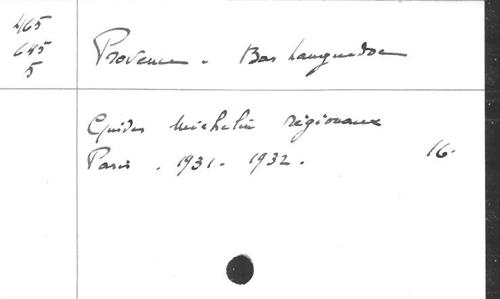 465
645
5
Provence. Bas Languedoc
Guides Michelin régionaux
Paris. 1931. 1932. 16.